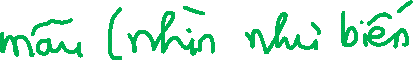 mẫu (nhìn như biến